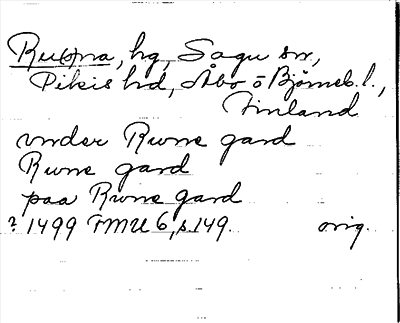 Runa, hg, Sagu sn,
Pikis hd, Åbo o Björneb. l.,
Finland
vnder Rwne gard
Rwne gard
paa Rwne gard
? 1499 FMU 6, s. 149. orig.